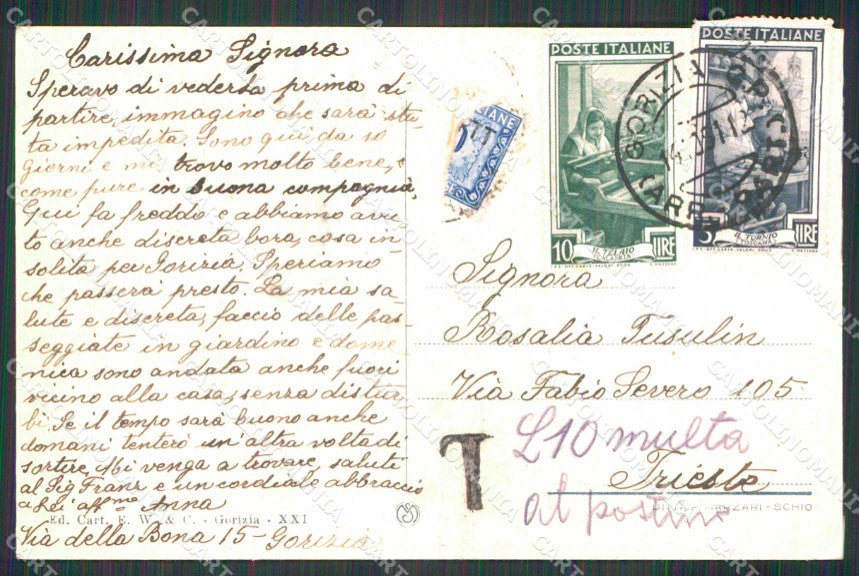 Carissima Signora
Speravo di vederla prima di
partire, immagino che sarà sta-
ta impedita. Sono qui da 10
giorni e mi trovo molto bene, e
come pure in buona compagnia.
Qui fa freddo e abbiamo avu
to anche discreta bora, cosa in-
solita per Gorizia. Speriamo
che passerà presto. La mia sa-
lute e discreta, faccio delle pas-
seggiate in giardino e dome
nica sono andata anche fuori
vicino alla casa, senza distur
bi. Se il tempo sarà buono anche
domani tenterò un'altra volta di
sortire. Mi venga a trovare, saluti
al Sig Franz e un cordiale abbraccio
a Lei affma Anna
Ed. Cart. E. W. & C. - Gorizia - XXI
Via della Bona 15 - Gorizia
POSTE ITALIANE
10 LIRE
IL TELAIO
POSTE ITALIANE
5 LIRE
IL TORNIO
GORIZIA
Signora
Rosalia Tusulin
Via Fabio Severo 105
Trieste
T
£10 multa
al postino
SCHIO
CARTOLINOMANIA